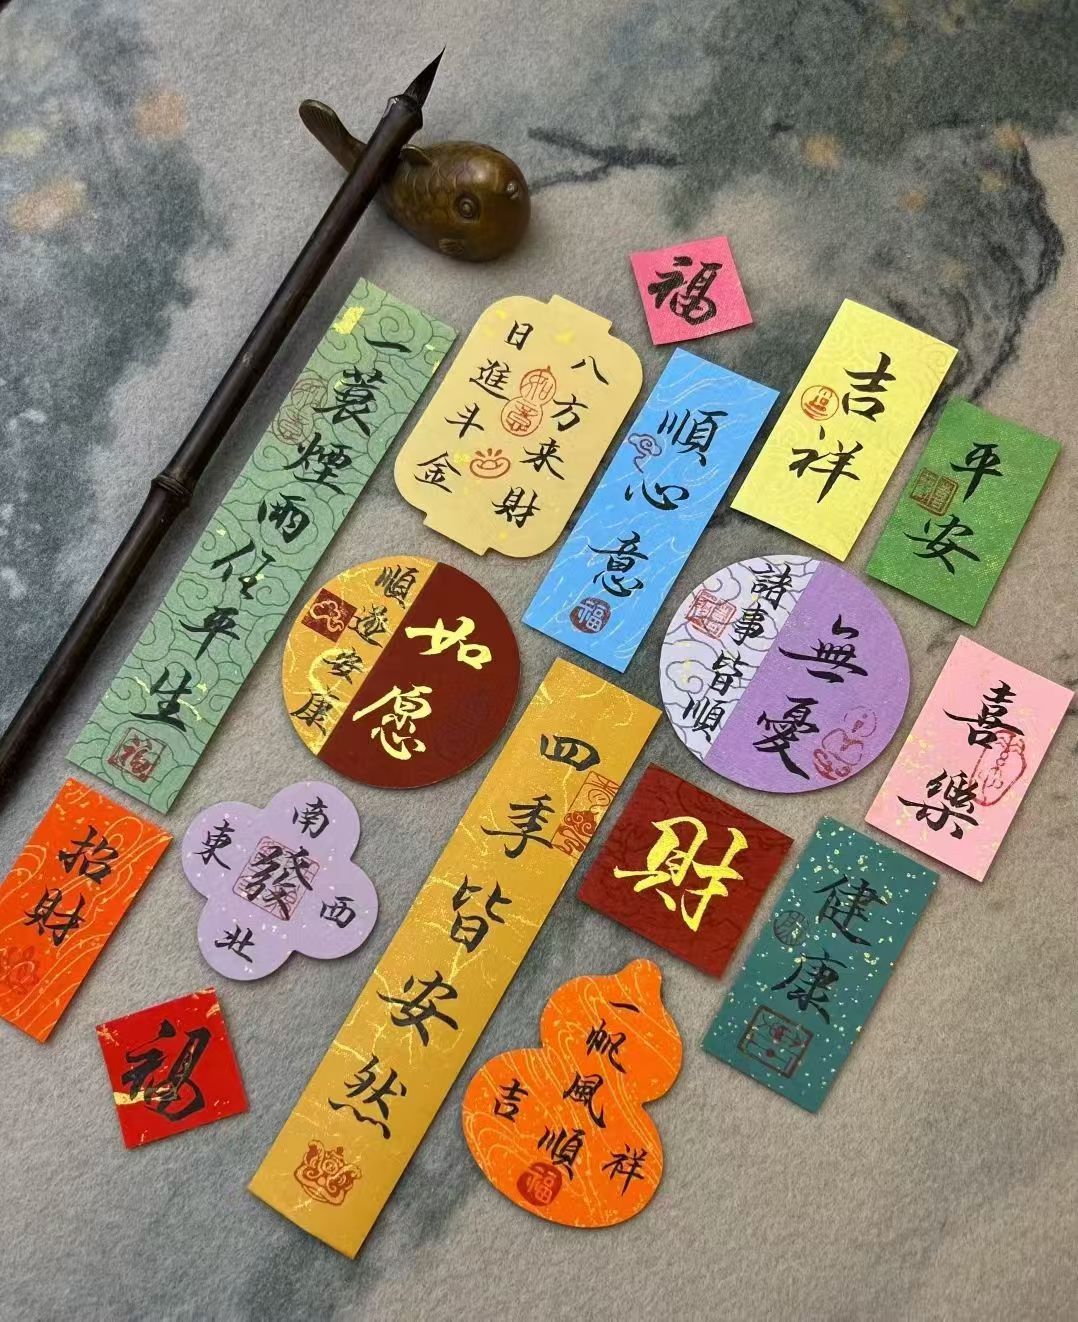 福
一蓑煙雨任平生
八方来財
日進斗金
順心意
福
吉祥
平安
順遂安康
如愿
諸事皆順
無憂
喜樂
四季皆安然
財
健康
招財
東南西北
發
福
一帆風順
吉祥
福